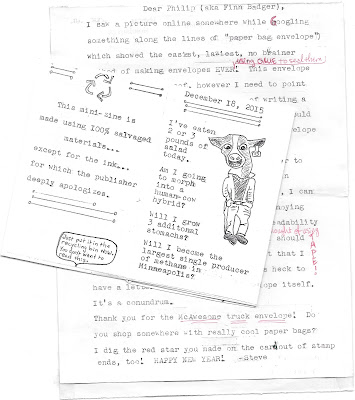 Dear Philip (aka Finn Badger),
I saw a picture online somewhere while Googling
something along the lines of "paper bag envelope")
which showed the easiest, laziest, no brainer
of making envelopes EVER! This envelope
using GLUE to seal them
of. however I need to point
of writing a
December 18, 2015
This mini-zine is
made using 100% salvaged
materials...
except for the ink...
for which the publisher
deeply apologizes.
Just put it in the
recycling bin when
you don't want to
read this.
I've eaten
2 or 3
pounds of
salad
today.
Am I going
to morph
into a
human-cow
hybrid?
Will I grow
3 additonal
stomachs?
Will I become the
largest single producer
of methane in
Minneapolis?
to
I can
should
that I
heck to
have a letter
itself.
It's a conundrum.
Thank you for the McAwesome truck envelope! Do
you shop somewhere with really cool paper bags?
I dig the red star you made on the carbout of stamp
ends, too! HAPPY NEW YEAR! -Steve